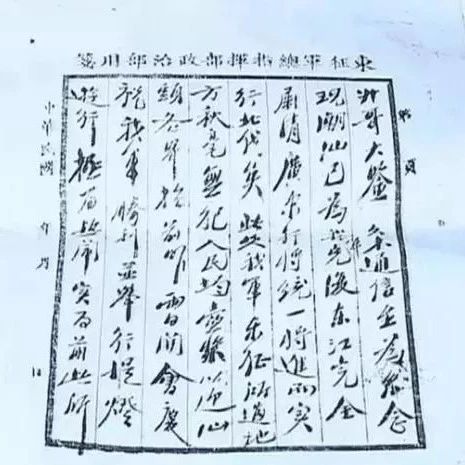 東征軍總指揮部政治部用箋
第 頁
哥大鑒 通信至為念
現潮汕已為我克復東江完全
肅清廣東行將統一將進而實
行北伐矣此次我軍東征所過地
方秋毫無犯人民均壺漿以迎汕
頭各界於前昨兩日開會慶
祝我軍勝利並舉行提燈
遊行極為熱鬧實為前此所
中華民國 年 月 日